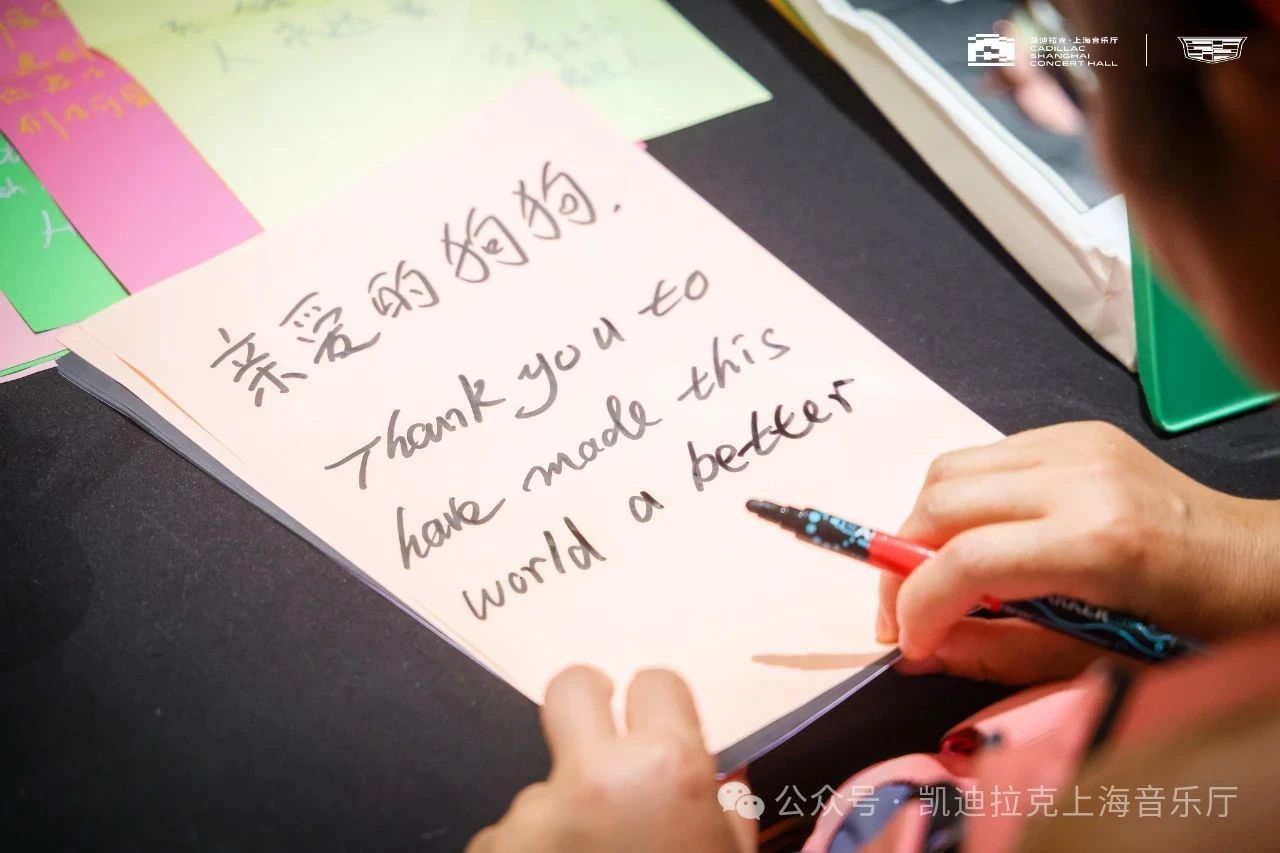 凯迪拉克·上海音乐厅
CADILLAC
SHANGHAI
CONCERT HALL
亲爱的狗狗.
Thank you to
have made this
world a better
公众号·凯迪拉克上海音乐厅